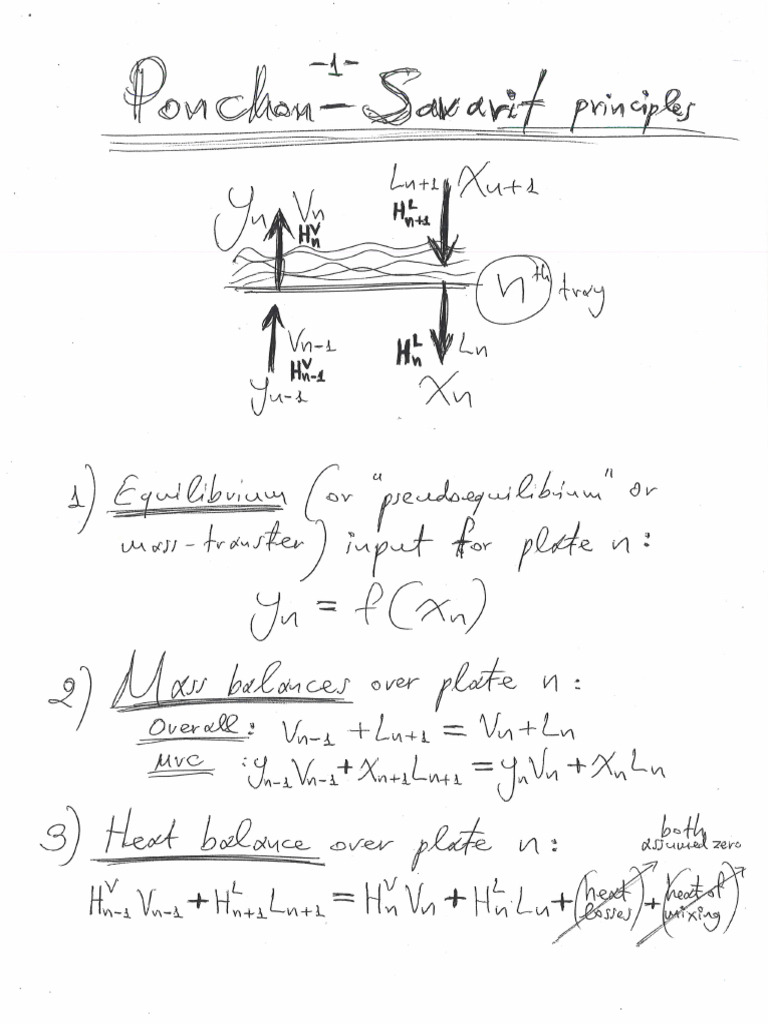 -1-
Ponchon - Savarit principles
yn Vn HnV
Ln+1 Xn+1 Hn+1L
nth tray
Vn-1 Hn-1V yn-1
HnL Ln Xn
1) Equilibrium (or "pseudoequilibrium" or
mass-transfer) input for plate n:
yn = f(xn)
2) Mass balances over plate n:
Overall: Vn-1 + Ln+1 = Vn + Ln
MVC : yn-1Vn-1 + xn+1Ln+1 = ynVn + xnLn
3) Heat balance over plate n:
both assumed zero
Hn-1V Vn-1 + Hn+1L Ln+1 = HnV Vn + HnL Ln + (heat losses) + (heat of mixing)